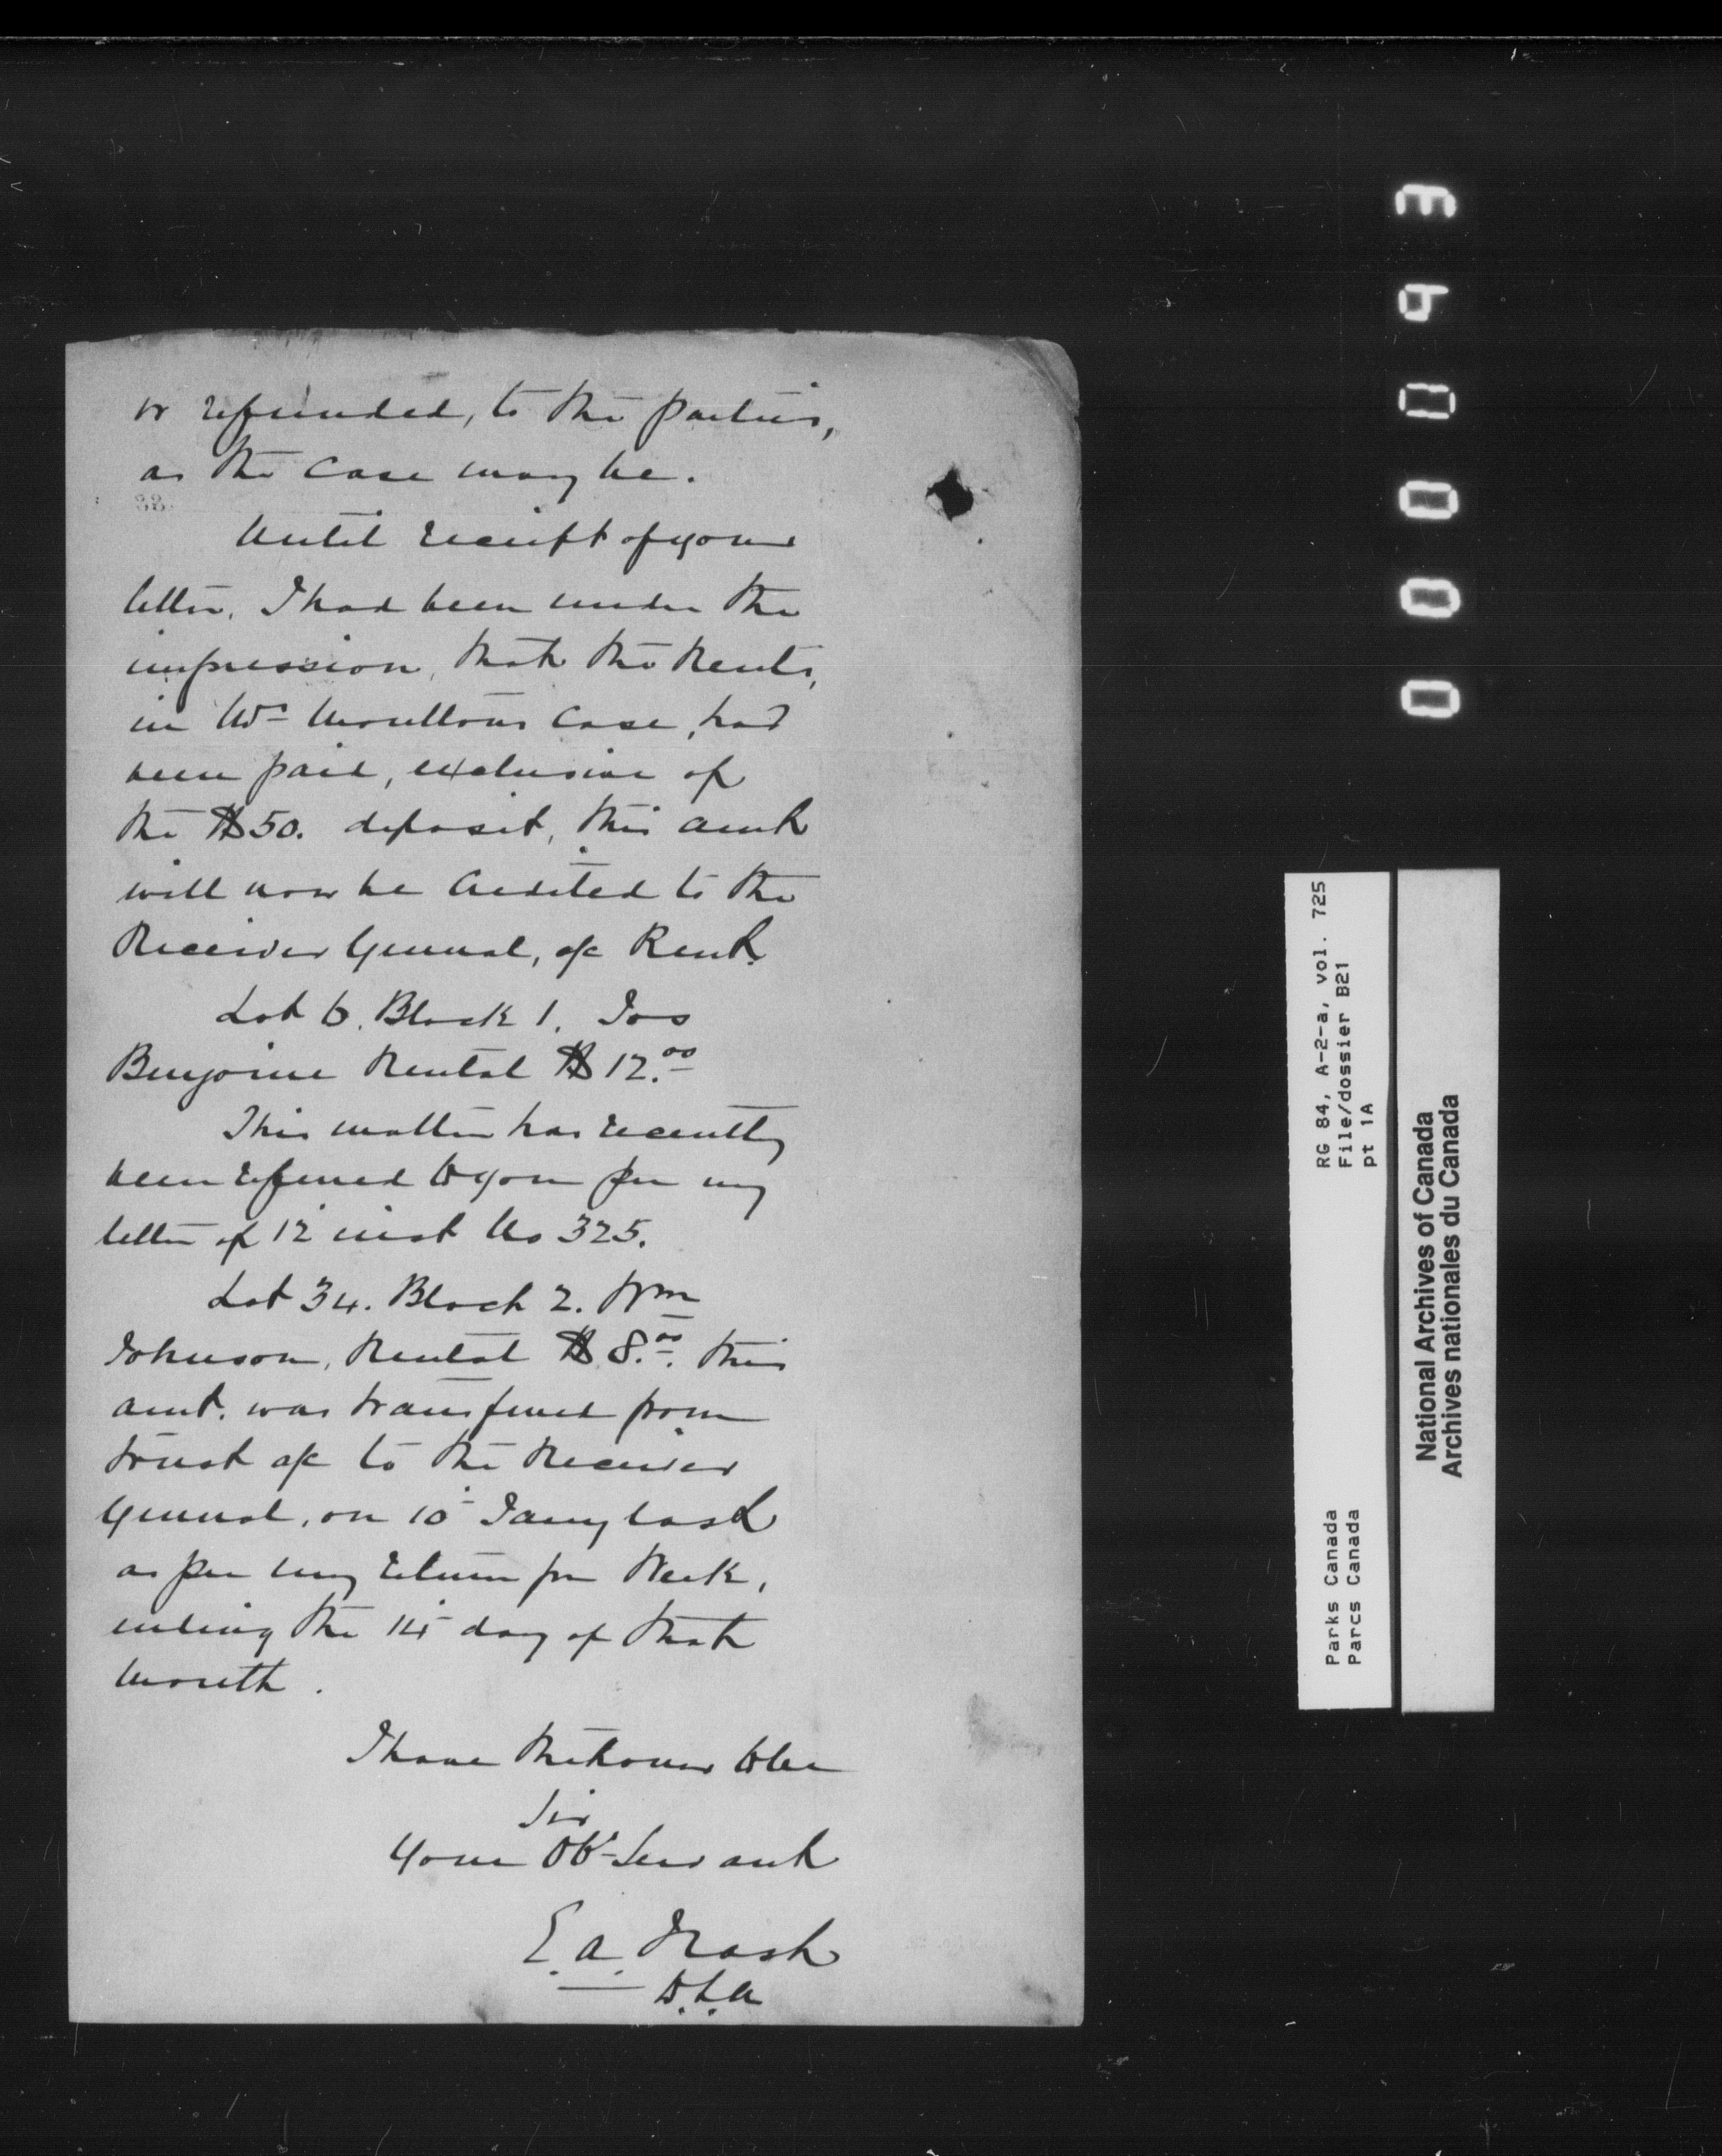 or refunded, to the parties,
as the case may be.
Until receipt of your
letter, I had been under the
impression, that the Rents,
in Mrs Moulton's case, had
been paid, exclusive of
the $50. deposit, this amt
will now be credited to the
Receiver General, a/c Rent.
Lot 6. Block 1. Jos
Rental $12.00
This matter has recently
been referred to you per my
letter of 12 inst No 325.
Lot 34. Block 2. Wm
Johnson, Rental $8.00. this
amt. was transferred from
trust a/c to the Receiver
General, on 10 Jany last
as per my return for Week,
ending the 14 day of that
month.
I have the honor to be
Sir
Your Obt Servant
E. A. Nash
D.L.A
000093
RG 84, A-2-a, vol. 725
File/dossier B21
pt 1A
Parks Canada
Parcs Canada
National Archives of Canada
Archives nationales du Canada